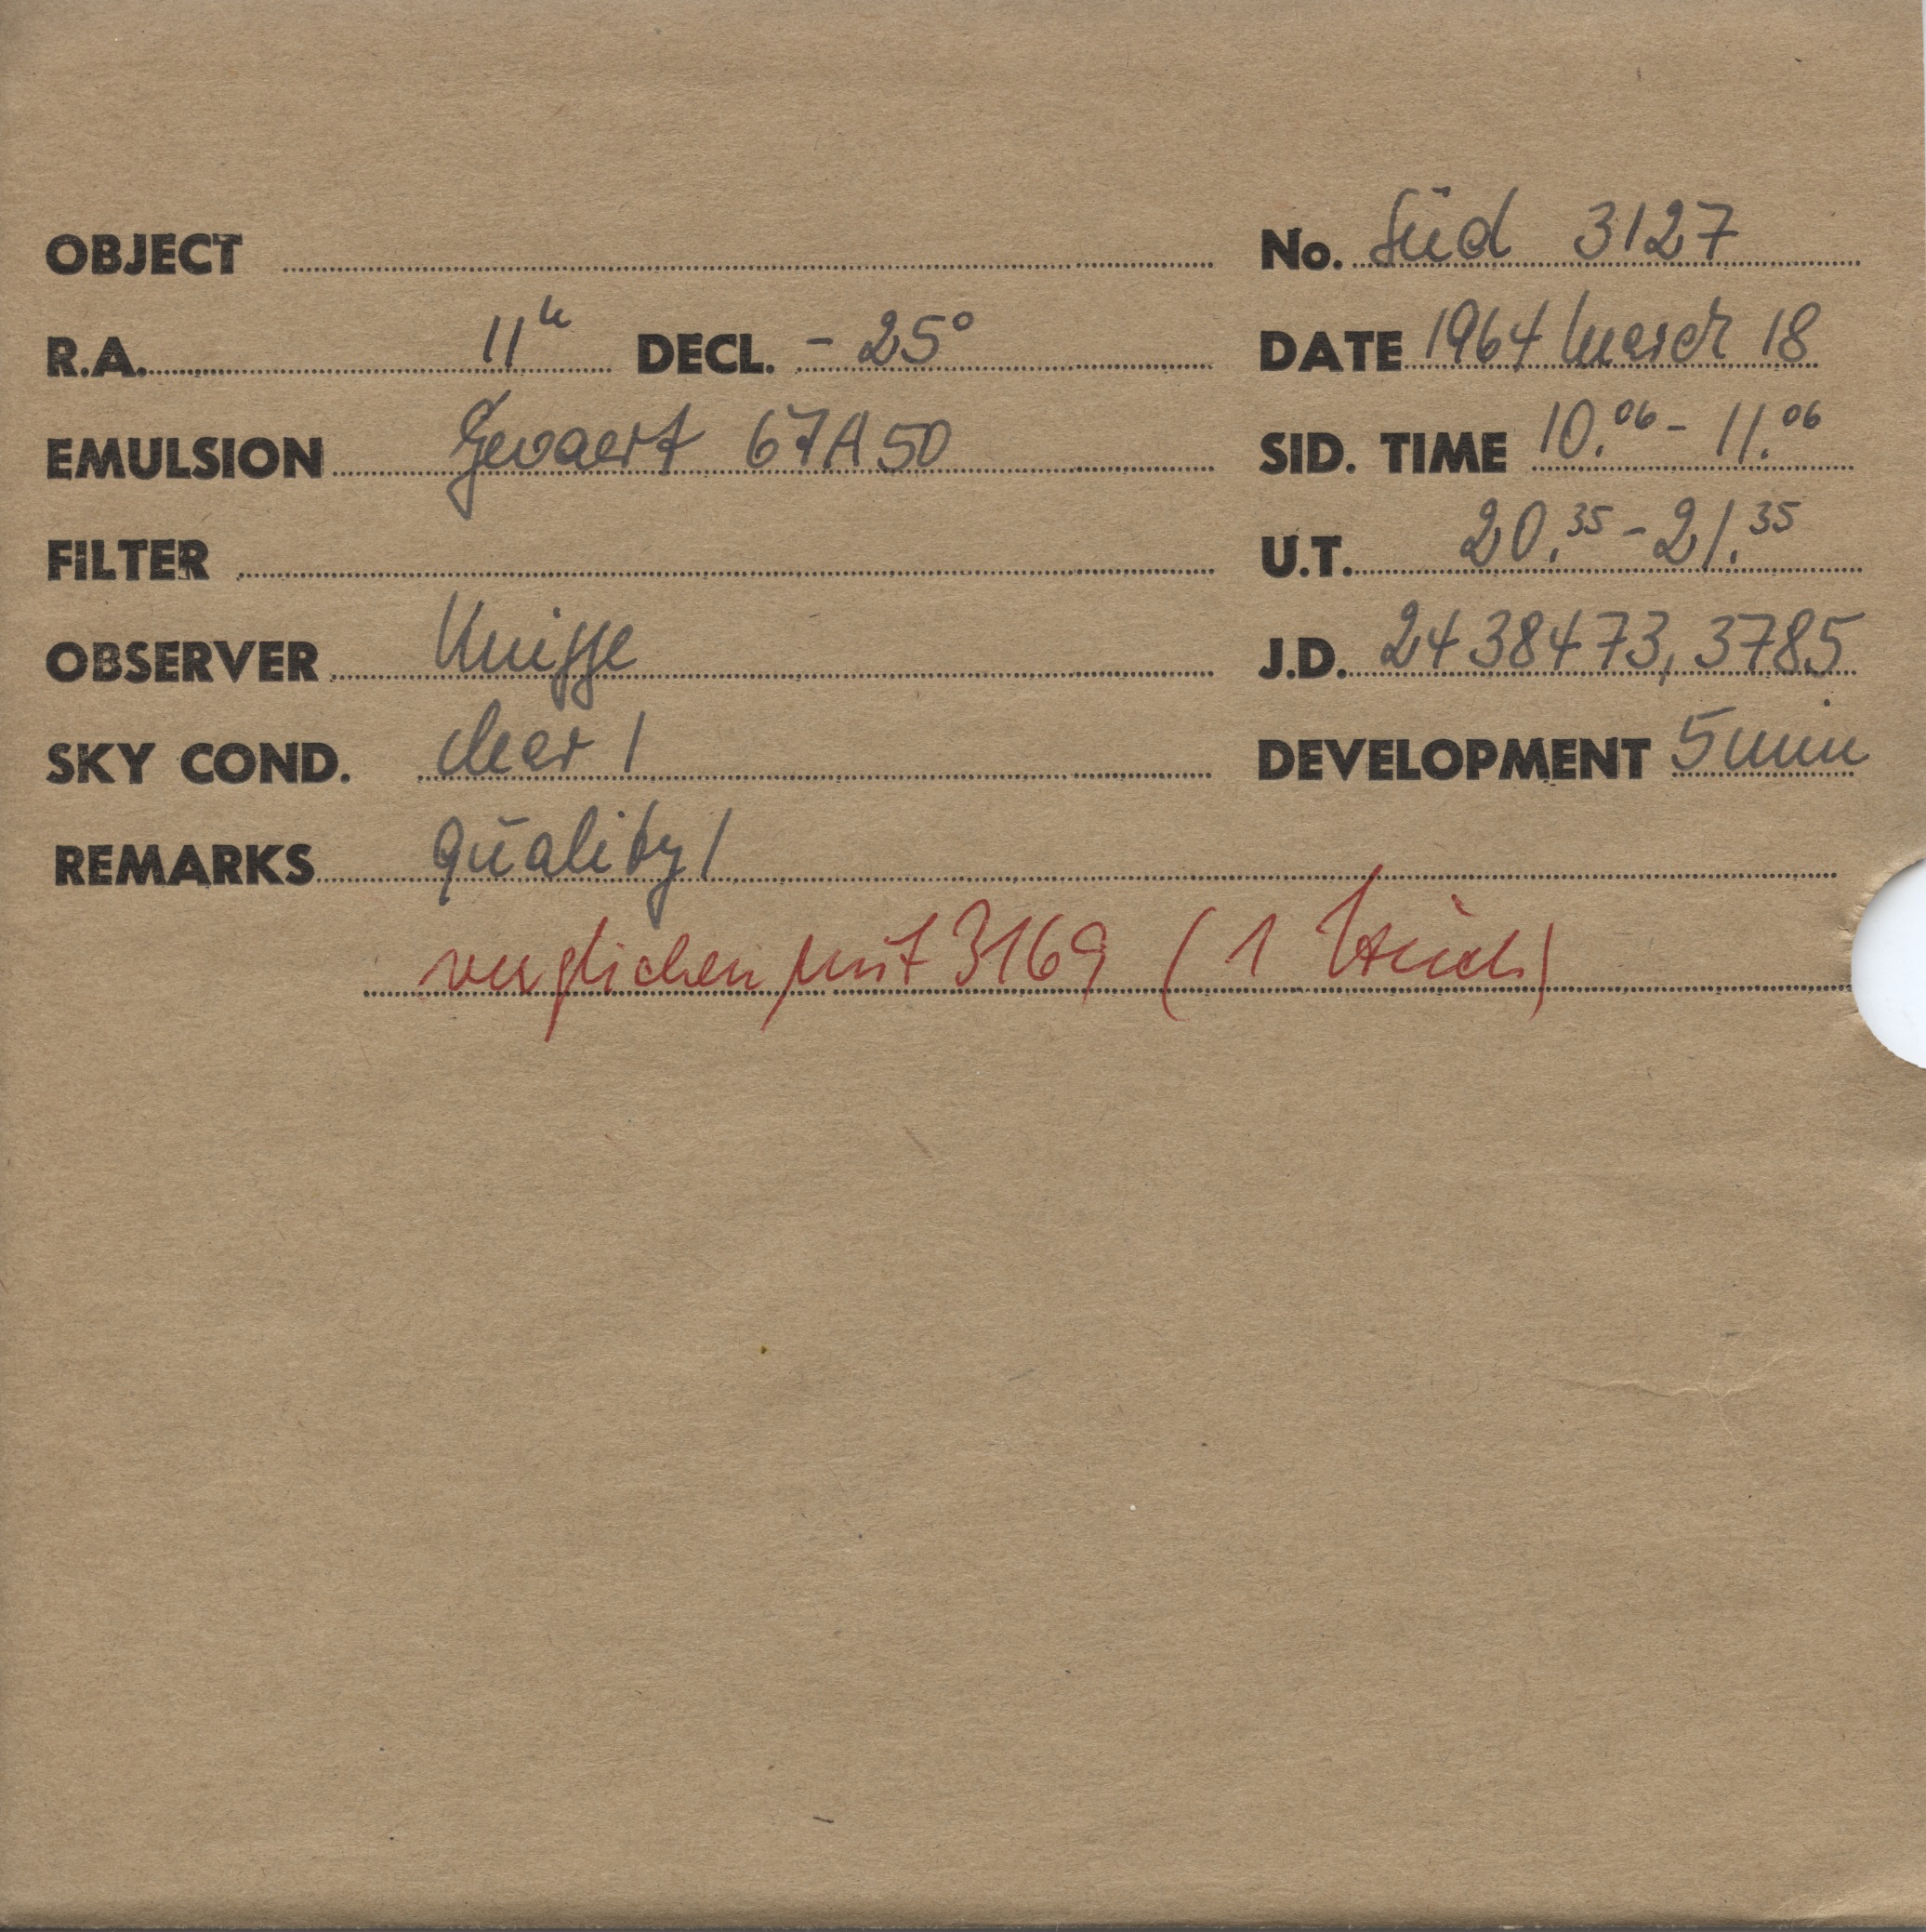 OBJECT No. Süd 3127
R.A. 11h DECL. - 25°
DATE 1964 March 18
EMULSION Gevaert 67A50
SID. TIME 10.06 - 11.06
FILTER
U.T. 20.35 - 21.35
OBSERVER Knigge
J.D. 2438473,3785
SKY COND. clear 1
DEVELOPMENT 5 min
REMARKS quality 1
verglichen mit 3169 ( 1